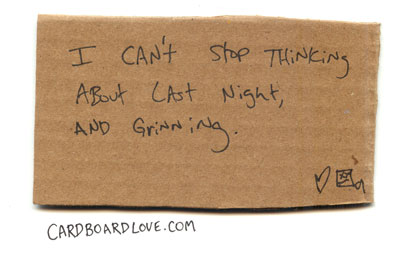 I CAN't Stop THiNKiNg
ABout LASt Night,
AND GriNNiNg.
CARDBOARDLOVE.COM